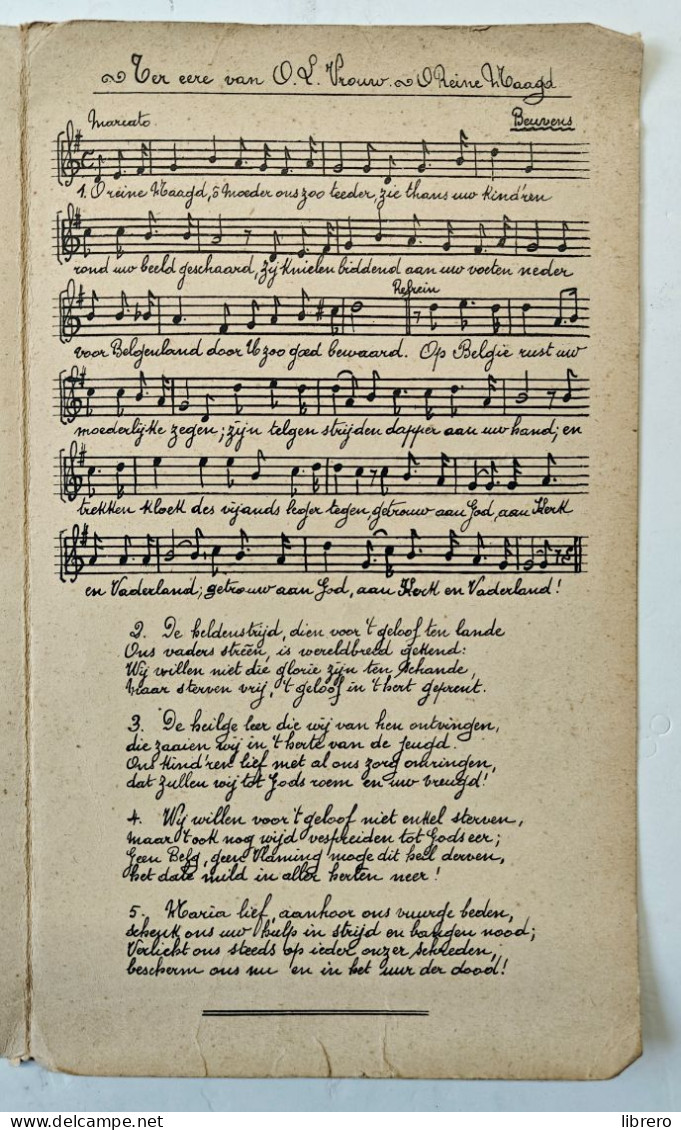 Ter eere van O. L. Vrouw. O Reine Maagd
Marcato. Beuvens
1. O reine Maagd, ô Moeder ons zoo teeder, zie thans uw kind'ren
rond uw beeld geschaard, zij knielen biddend aan uw voeten neder
Refrein
voor Belgenland door U zoo goed bewaard. Op België rust uw
moederlijke zegen; zijn telgen strijden dapper aan uw hand; en
trekken kloek des vijands leger tegen, getrouw aan God, aan Kerk
en Vaderland; getrouw aan God, aan Kerk en Vaderland!
2. De heldenstrijd, dien voor 't geloof ten lande
Ons vaders streên, is wereldbreed gekend:
Wij willen niet die glorie zijn ten schande,
Maar sterven vrij, 't geloof in 't hert geprent.
3. De heilge leer die wij van hen ontvingen,
die zaaien wij in 't herte van de jeugd.
Ons kind'ren lief met al ons zorg omringen,
dat zullen wij tot Gods roem en uw vreugd!
4. Wij willen voor 't geloof niet enkel sterven,
maar 't ook nog wijd verspreiden tot Gods eer;
Geen Belg, geen Vlaming moge dit heil derven,
het dale mild in aller herten neer!
5. Maria lief, aanhoor ons vuurge beden,
schenk ons uw hulp in strijd en bangen nood;
Verlicht ons steeds op ieder onzer schreden,
bescherm ons nu en in het uur der dood!
Photo © librero